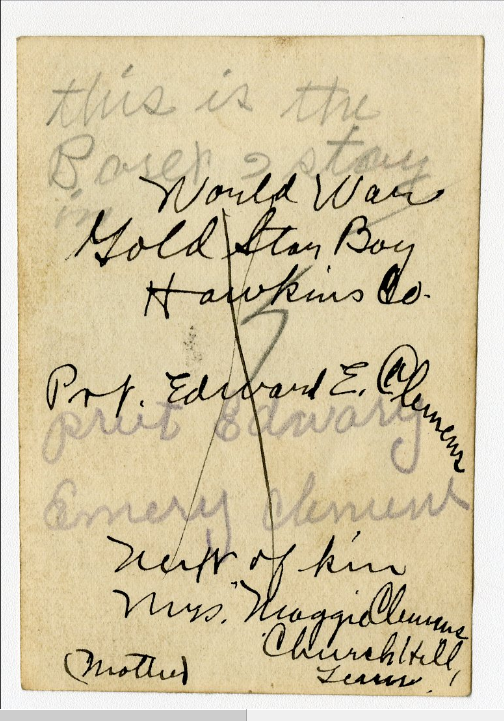 this is the
2 stay
in
World War
Gold Star Boy
Hawkins Co.
Pvt. Edward E. Clemens
Edward
Emery Clement
Next of kin
Mrs. Maggie Clemens
Church Hill,
Tenn.
(Mother)